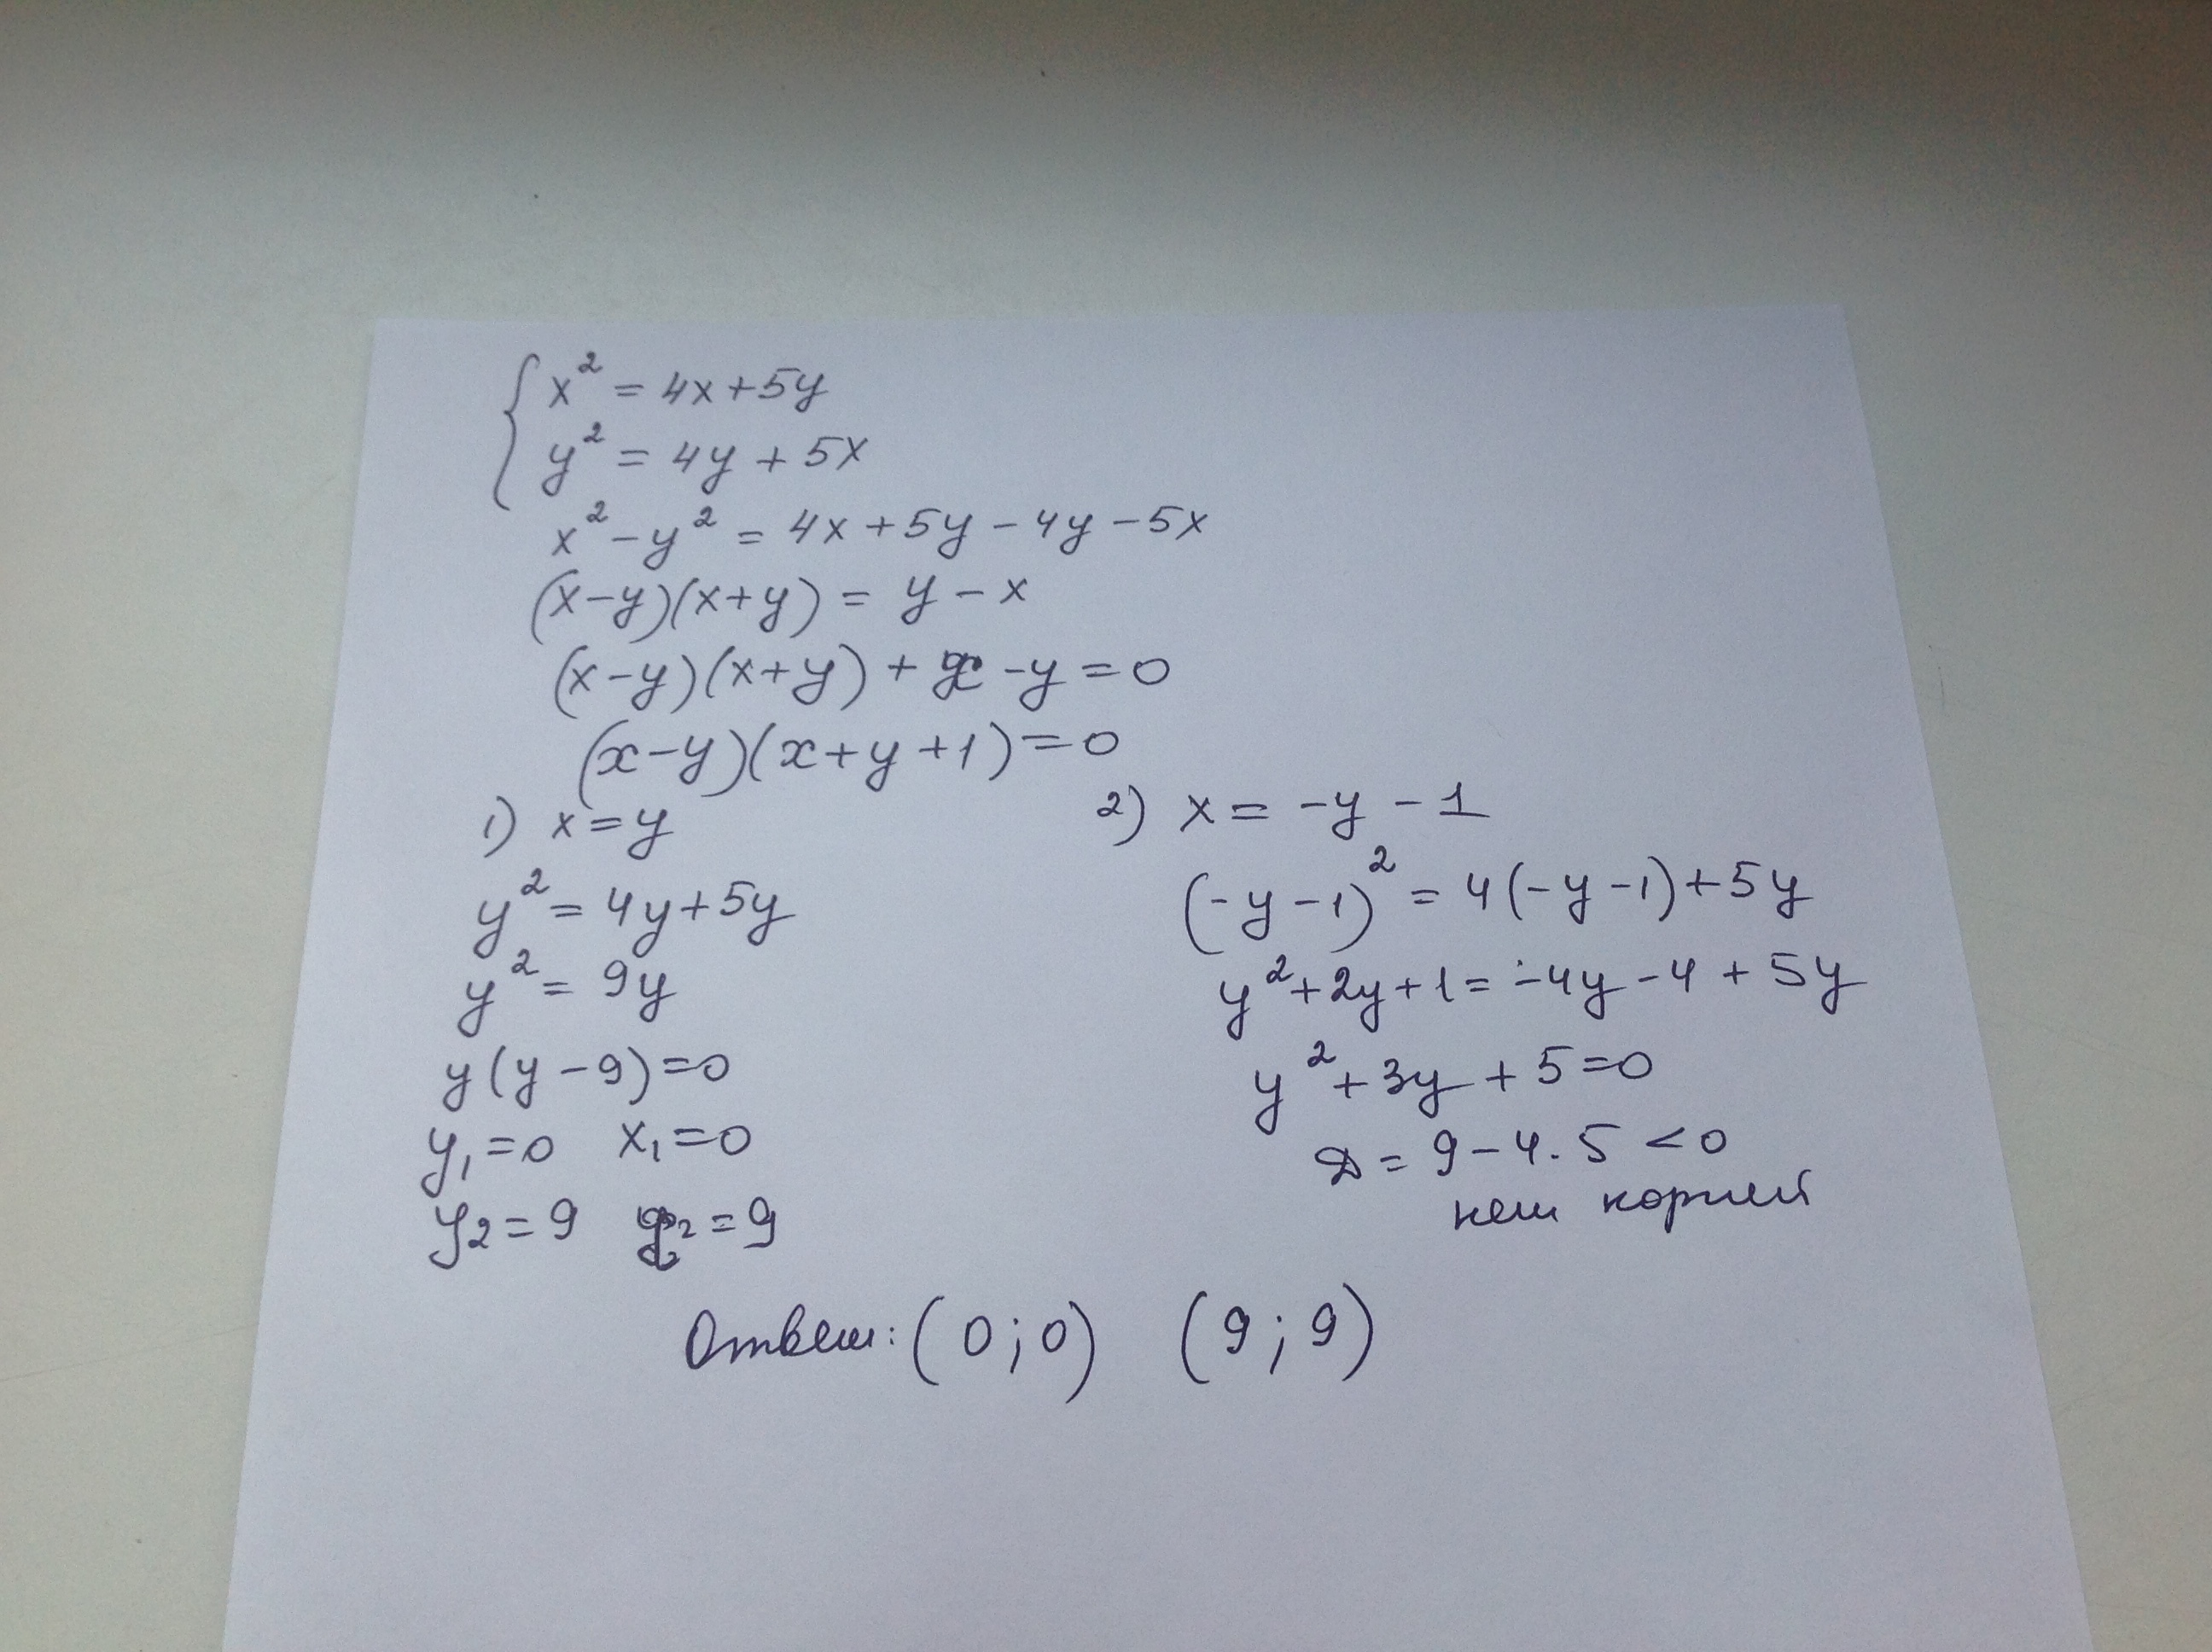 { x² = 4x+5y
y² = 4y + 5x
x² - y² = 4x + 5y - 4y - 5x
(x-y)(x+y) = y - x
(x-y)(x+y) + x - y = 0
(x-y)(x+y+1) = 0
1) x = y
y² = 4y + 5y
y² = 9y
y(y-9) = 0
y₁ = 0 x₁ = 0
y₂ = 9 x₂ = 9
2) x = -y - 1
(-y-1)² = 4(-y-1) + 5y
y² + 2y + 1 = -4y - 4 + 5y
y² + 3y + 5 = 0
D = 9 - 4·5 < 0
нет корней
Ответ: (0;0) (9;9)